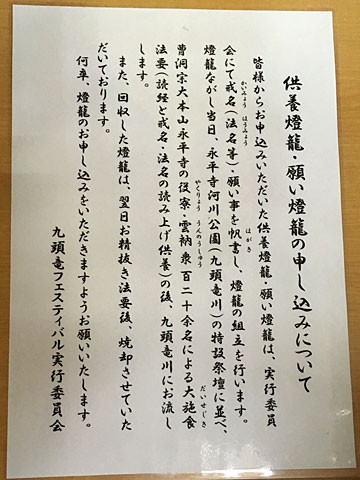 供養燈籠・願い燈籠の申し込みについて
皆様からお申込みいただいた供養燈籠・願い燈籠は、実行委員
会にて戒名(法名等)・願い事を帆書し、燈籠の組立を行います。
かいみょう ほうみょう はがき
燈籠ながし当日、永平寺河川公園(九頭竜川)の特設祭壇に並べ、
曹洞宗大本山永平寺の役寮・雲衲衆百二十余名による大施食
やくりょう うんのうしゅう だいせじき
法要(読経と戒名・法名の読み上げ供養)の後、九頭竜川にお流し
します。
また、回収した燈籠は、翌日お精抜き法要後、焼却させていた
だいております。
何卒、燈籠のお申し込みをいただきますようお願いいたします。
九頭竜フェスティバル実行委員会